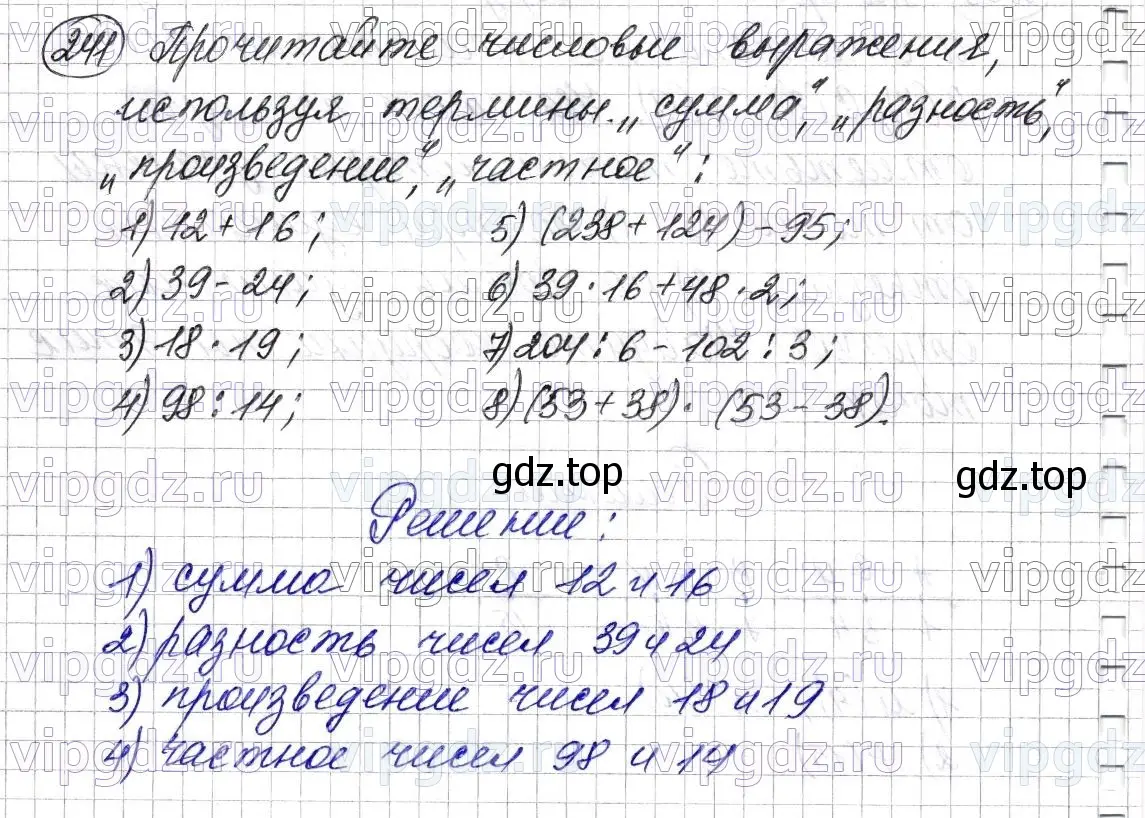 241 Прочитайте числовые выражения,
используя термины „сумма“, „разность“,
„произведение“, „частное“:
1) 12 + 16; 5) (238 + 124) - 95;
2) 39 - 24; 6) 39 · 16 + 48 · 2;
3) 18 · 19; 7) 204 : 6 - 102 : 3;
4) 98 : 14; 8) (53 + 38) · (53 - 38).
gdz.top gdz.top
Решение:
1) сумма чисел 12 и 16
2) разность чисел 39 и 24
3) произведение чисел 18 и 19
4) частное чисел 98 и 14
vipgdz.ru